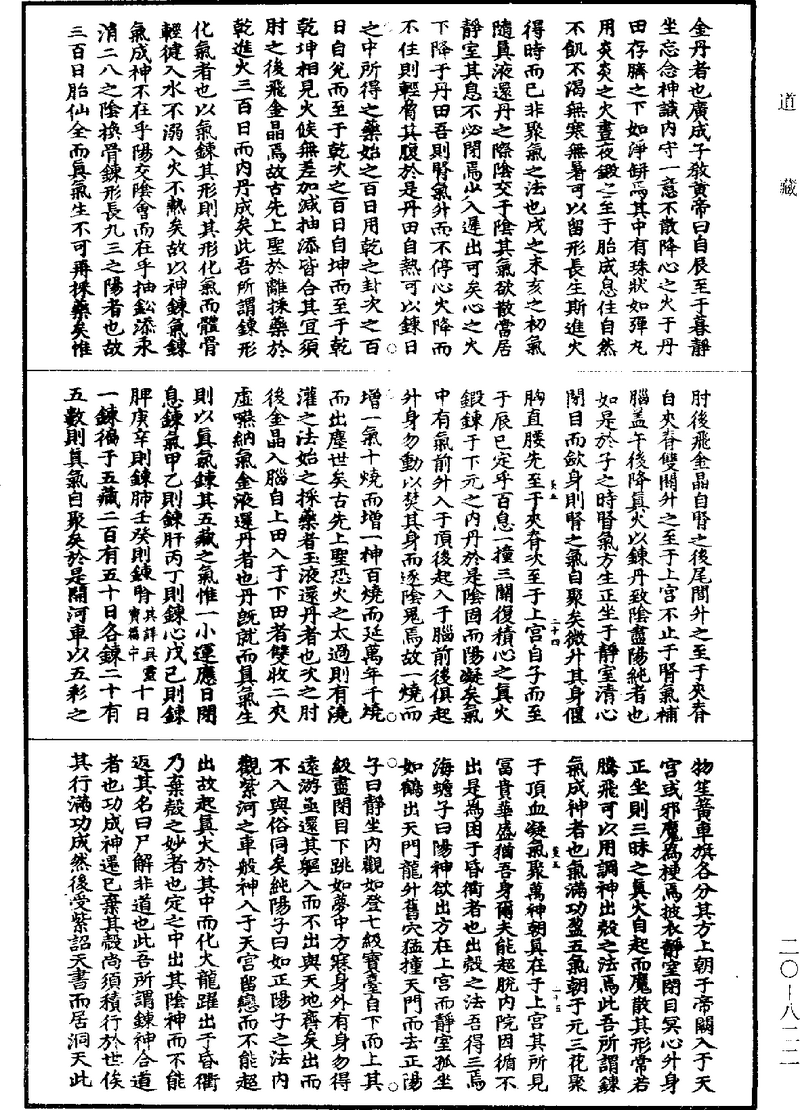 道藏
金丹者也廣成子教黃帝曰自辰至于暮靜
坐忘念神識內守一意不散降心之火于丹
田存臍之下如淨缾焉其中有珠狀如彈丸
用炎炎之火晝夜鍛之至于胎成息住自然
不飢不渴無寒無暑可以留形長生斯進火
得時而已非聚氣之法也戌之末亥之初氣
隨眞液還丹之際陰交于陰其氣欲散常居
靜室其息不必閉焉少入遲出可矣心之火
下降于丹田吾則腎氣升而不停心火降而
不住則輕脅其腹於是丹田自熱可以鍊日
之中所得之藥始之百日用乾之卦次之百
日自兊而至于乾次之百日自坤而至于乾
乾坤相見火候無差加減抽添皆合其宜須
肘之後飛金晶焉故古先上聖於離採藥於
乾進火三百日而內丹成矣此吾所謂鍊形
化氣者也以氣鍊其形則其形化氣而體骨
輕徤入水不溺入火不熱矣故以神鍊氣鍊
氣成神不在乎陽交陰會而在乎抽鈆添汞
消二八之陰換骨鍊形長九三之陽者也故
三百日胎仙全而眞氣生不可再採藥矣惟
肘後飛金晶自腎之後尾閭升之至于夾脊
自夾脊雙關升之至于上宮不止于腎氣補
腦盖午後降眞火以鍊丹致陰盡陽純者也
如是於子之時腎氣方生正坐于靜室清心
閉目而歛身則腎之氣自聚矣微升其身偃
二十四
胸直腰先至于夾脊次至于上宮自子而至
于辰巳定乎百息一撞三關復積心之眞火
鍛鍊于下元之內丹於是陰固而陽凝矣氣
中有氣前升入于頂後起入于腦前後俱起
升身勿動以焚其身而逐陰鬼焉故一燒而
增一氣十燒而增一神百燒而延萬年千燒
而出塵世矣古先上聖恐火之太過則有澆
灌之法始之採藥者玉液還丹者也次之肘
後金晶入腦自上田入于下田者雙收二夾
虛嚥納氣金液還丹者也丹旣就而眞氣生
則以眞氣鍊其五藏之氣惟一小運應日閉
息鍊氣甲乙則鍊肝丙丁則鍊心戊己則鍊
脾庚辛則鍊肺壬癸則鍊腎其詳具靈寶篇中十日
一鍊徧于五藏二百有五十日各鍊二十有
五數則眞氣自聚矣於是開河車以五彩之
物笙簧車旗各分其方上朝于帝闕入于天
宮或邪魔爲梗焉披衣靜室閉目冥心升身
正坐則三昧之眞火自起而魔散其形常若
騰飛可以用調神出殼之法焉此吾所謂鍊
氣成神者也氣滿功盈五氣朝于元三花聚
二十五
于頂血凝氣聚萬神朝眞在于上宮其所見
富貴華盛猶吾身爾夫能超脫內院因循不
出是爲困于昏衢者也出殼之法吾得三焉
海蟾子曰陽神欲出方在上宮而靜室孤坐
如鶴出天門龍升舊穴猛撞天門而去正陽
子曰靜坐內觀如登七級寶臺自下而上其
級盡閉目下跳如夢中方寐身外有身勿得
遠游亟還其軀入而不出與天地齊矣出而
不入與俗同矣純陽子曰如正陽子之法內
觀紫河之車般神入于天宮留戀而不能超
出故起眞火於其中而化火龍躍出于昏衢
乃棄殼之妙者也定之中出其陰神而不能
返其名曰尸解非道也此吾所謂鍊神合道
者也功成神還已棄其殼尚須積行於世俟
其行滿功成然後受紫詔天書而居洞天此
二〇-八一二